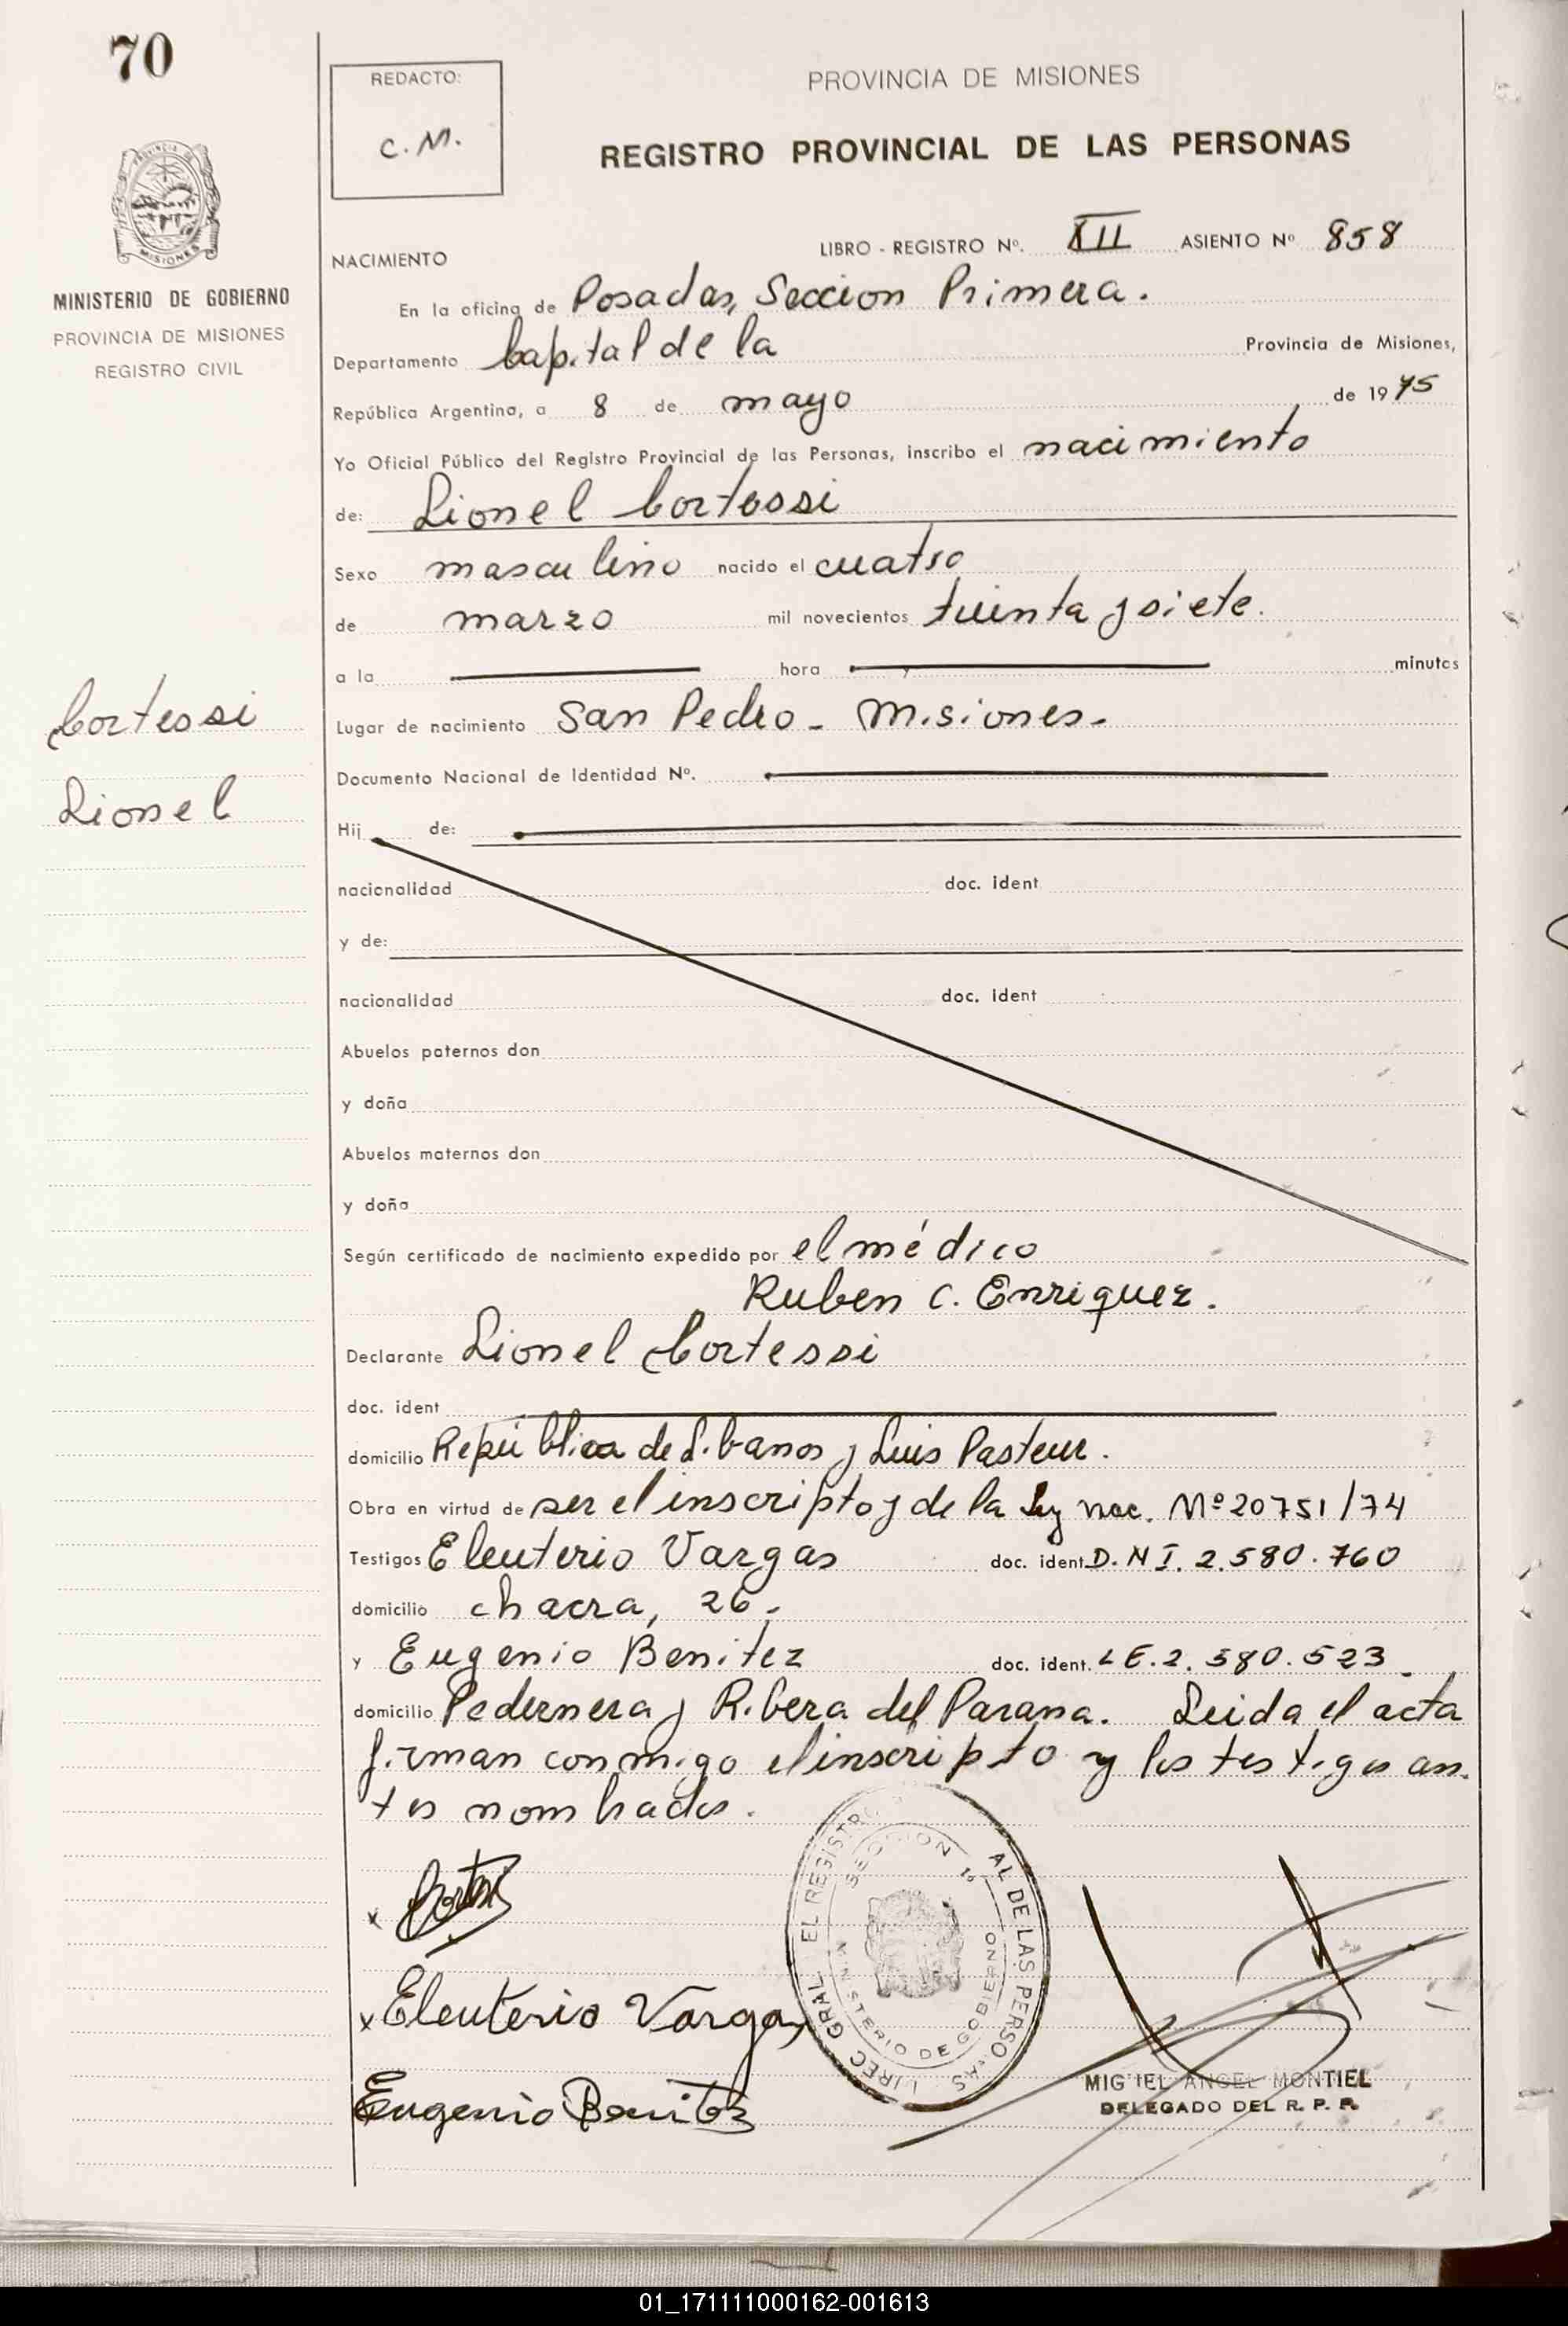 70
REDACTO:
C.M.
PROVINCIA DE MISIONES
REGISTRO PROVINCIAL DE LAS PERSONAS
PROVINCIA DE
MISIONES
MINISTERIO DE GOBIERNO
PROVINCIA DE MISIONES
REGISTRO CIVIL
NACIMIENTO
LIBRO - REGISTRO Nº. XII ASIENTO Nº 858
En la oficina de Posadas, Seccion Primera.
Departamento Capital de la Provincia de Misiones,
República Argentina, a 8 de mayo de 1975
Yo Oficial Público del Registro Provincial de las Personas, inscribo el nacimiento
de: Lionel Cortessi
Sexo masculino nacido el cuatro
de marzo mil novecientos treinta y siete.
a la hora y minutos
Cortessi
Lionel
Lugar de nacimiento San Pedro - Misiones.
Documento Nacional de Identidad Nº.
Hij de:
nacionalidad doc. ident
y de:
nacionalidad doc. ident
Abuelos paternos don
y doña
Abuelos maternos don
y doña
Según certificado de nacimiento expedido por el médico
Ruben C. Enriquez.
Declarante Lionel Cortessi
doc. ident
domicilio República de Libanos y Luis Pasteur.
Obra en virtud de ser el inscripto y de la Ley nac. Nº 20751/74
Testigos Eleuterio Vargas doc. ident. D.N I. 2.580.760
domicilio chacra, 26.
y Eugenio Benitez doc. ident. L E. 2. 580. 523.
domicilio Pedernera y Ribera del Parana. Leida el acta
firman conmigo el inscripto y los testigos an-
tes nombrados.
Eleuterio Vargas
Eugenio Benitez
EL REGISTRO AL DE LAS PERSO AS
SECCION 1ª
MINISTERIO DE GOBIERNO
MIG IEL ANGEL MONTIEL
DELEGADO DEL R. P. P.
01_171111000162-001613